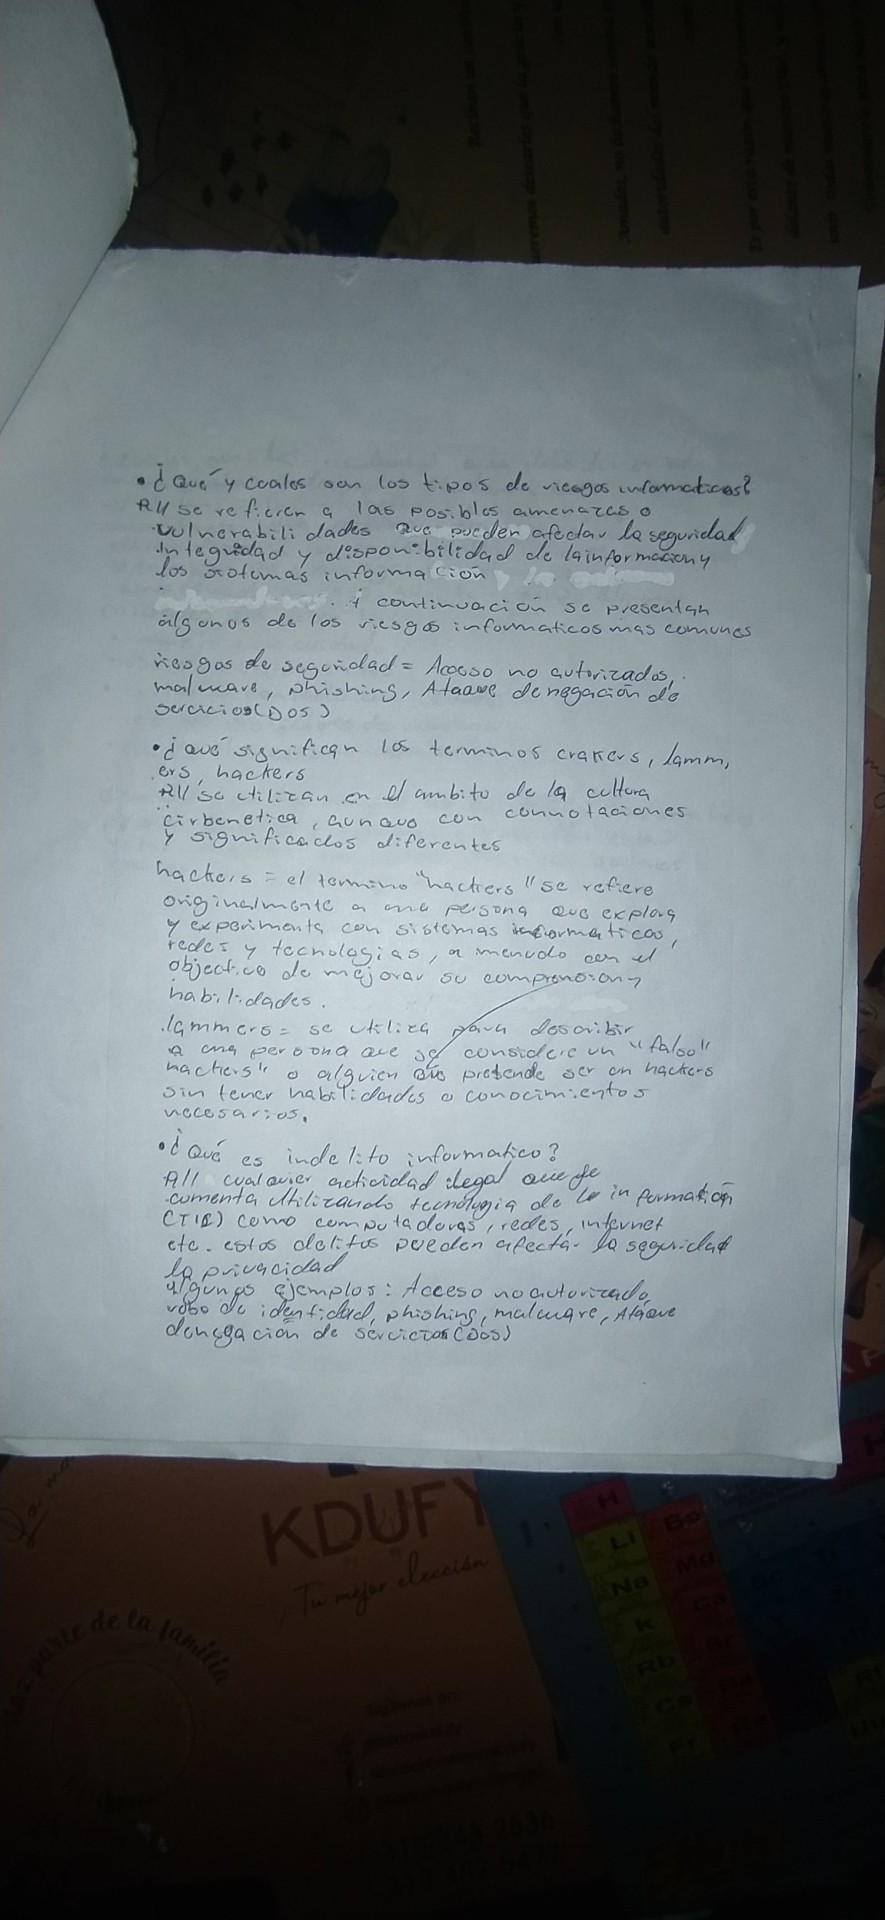 • ¿Qué y cuales son los tipos de riesgos informaticos?
R// se refieren a las posibles amenazas o
vulnerabilidades que pueden afectar la seguridad
integridad y disponibilidad de la informacion y
los sistemas información
A continuación se presentan
algunos de los riesgos informaticos mas comunes
riesgos de seguridad = Acceso no autorizados,
malware, phishing, Ataque denegación de
servicios (DOS)
• ¿qué significan los terminos crakers, lamm,
ers, hackers
R// se utilizan en el ambito de la cultura
cirbenetica, aunque con connotaciones
y significados diferentes
hackers = el termino "hackers" se refiere
originalmente a una persona que explora
y experimenta con sistemas informaticos,
redes y tecnologias, a menudo con el
objectivo de mejorar su comprension y
habilidades.
lammers = se utiliza para describir
a una persona que se considere un "falso"
hackers" o alguien que pretende ser un hackers
sin tener habilidades o conocimientos
necesarios.
• ¿Qué es indelito informatico?
R// cualquier actividad ilegal que se
comenta utilizando tecnologia de la información
(TIC) como computadoras, redes, internet
etc. estos delitos pueden afectar la seguridad
la privacidad
algunos ejemplos: Acceso no autorizado,
robo de identidad, phishing, malware, Ataque
denegación de servicios (DOS)
KDUFY
Tu mejor elección
parte de la familia
H
Li
Na
K
Rb
Cs
Fr